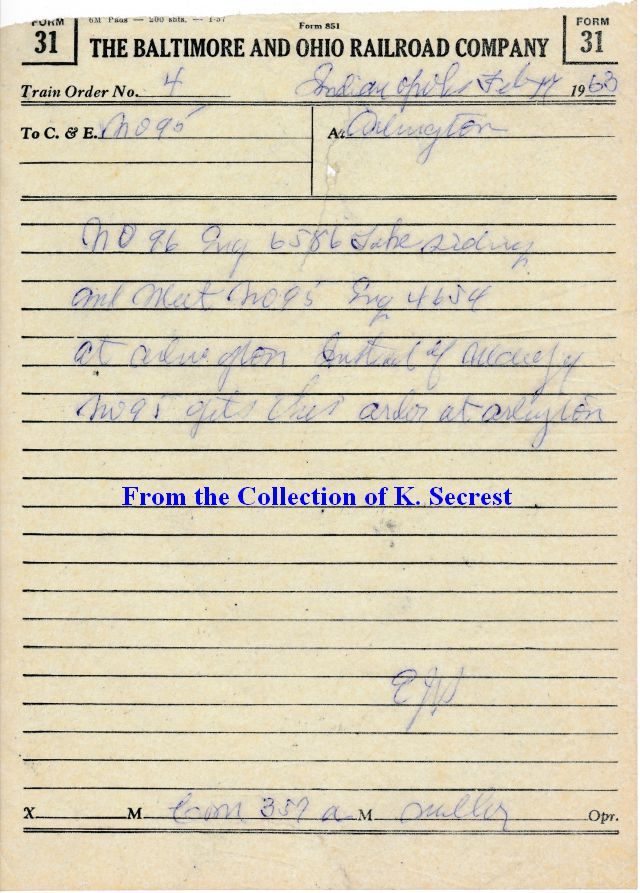 FORM 31
6M Pads — 200 shts. — 1-57
Form 851
FORM 31
THE BALTIMORE AND OHIO RAILROAD COMPANY
Train Order No. 4 Indianapolis Feb 17 1963
To C. & E. No 95 At Arlington
No 96 Eng 6586 Take siding
and Meet No 95 Eng 4654
at arlington Instead of
No 95 gets this order at arlington
From the Collection of K. Secrest
X M Com 357 a M Miller Opr.